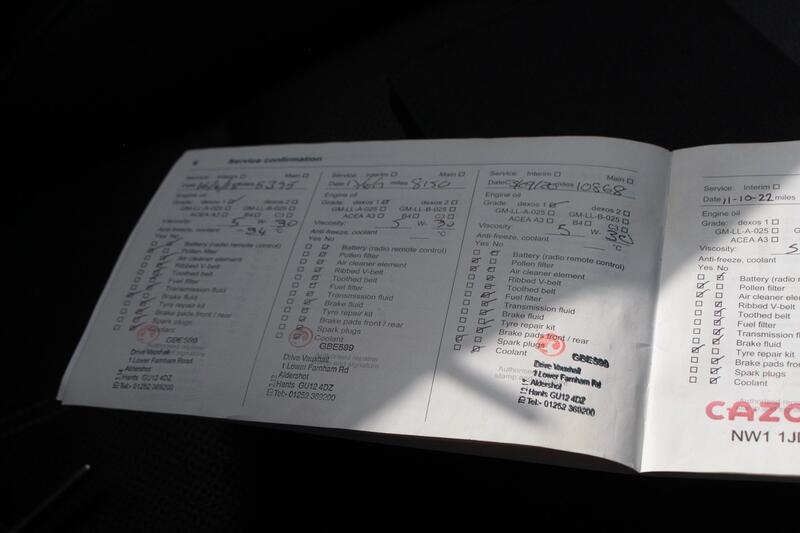 6 Service confirmation
Service: Interim Main
Date miles 5395
Engine oil
Grade: dexos 1 dexos 2
GM-LL-A-025 GM-LL-B-025
ACEA A3 B4 C3
Viscosity: 5 W- 30
Anti-freeze, coolant -34 °C
Yes No
Battery (radio remote control)
Pollen filter
Air cleaner element
Ribbed V-belt
Toothed belt
Fuel filter
Transmission fluid
Brake fluid
Tyre repair kit
Brake pads front / rear
Spark plugs
Coolant
GBE599
Drive Vauxhall
1 Lower Farnham Road
Aldershot
Hants GU12 4DZ
Tel:- 01252 369200
Service: Interim Main
Date miles 8150
Engine oil
Grade: dexos 1 dexos 2
GM-LL-A-025 GM-LL-B-025
ACEA A3 B4 C3
Viscosity: 5 W- 30
Anti-freeze, coolant °C
Yes No
Battery (radio remote control)
Pollen filter
Air cleaner element
Ribbed V-belt
Toothed belt
Fuel filter
Transmission fluid
Brake fluid
Tyre repair kit
Brake pads front / rear
Spark plugs
Coolant
GBE599
Drive Vauxhall
1 Lower Farnham Rd
Aldershot
Hants GU12 4DZ
Tel:- 01252 369200
Service: Interim Main
Date miles 10868
Engine oil
Grade: dexos 1 dexos 2
GM-LL-A-025 GM-LL-B-025
ACEA A3 B4 C3
Viscosity: 5 W- 30
Anti-freeze, coolant °C
Yes No
Battery (radio remote control)
Pollen filter
Air cleaner element
Ribbed V-belt
Toothed belt
Fuel filter
Transmission fluid
Brake fluid
Tyre repair kit
Brake pads front / rear
Spark plugs
Coolant
GBE599
Drive Vauxhall
1 Lower Farnham Rd
Aldershot
Hants GU12 4DZ
Tel:- 01252 369200
Service: Interim
Date 11-10-22 miles
Engine oil
Grade: dexos 1
GM-LL-A-025
ACEA A3
Viscosity: 5
Anti-freeze, coolant
Yes No
Battery (radio
Pollen filter
Air cleaner element
Ribbed V-belt
Toothed belt
Fuel filter
Transmission fluid
Brake fluid
Tyre repair kit
Brake pads front / rear
Spark plugs
Coolant
CAZO
NW1 1J